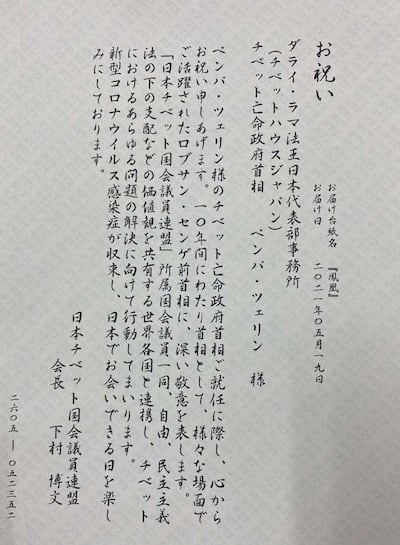 お祝い
お届け台紙名　『鳳凰』
お届け日　二〇二一年〇五月一九日
ダライ・ラマ法王日本代表部事務所
（チベットハウスジャパン）
チベット亡命政府首相　ペンパ・ツェリン　様
ペンパ・ツェリン様のチベット亡命政府首相ご就任に際し、心から
お祝い申しあげます。一〇年間にわたり首相として、様々な場面で
ご活躍されたロブサン・センゲ前首相に、深い敬意を表します。
「日本チベット国会議員連盟」所属国会議員一同、自由、民主主義
法の下の支配などの価値観を共有する世界各国と連携し、チベット
におけるあらゆる問題の解決に向けて行動してまいります。
新型コロナウイルス感染症が収束し、日本でお会いできる日を楽し
みにしております。
日本チベット国会議員連盟
会長　下村　博文
二六〇五―〇五二三五二